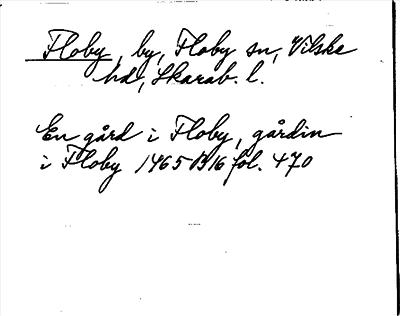 Floby, by, Floby sn, Vilske
hd, Skarab. l.
En gård i Floby, gårdin
i Floby 1465 B16 fol. 470